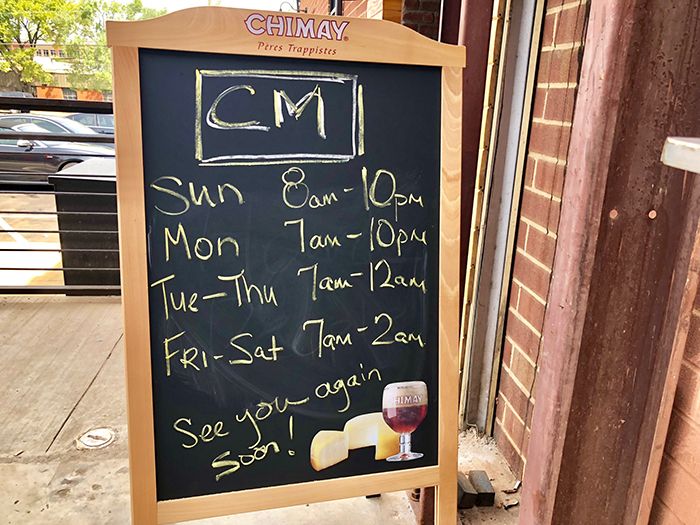 CHIMAY
Pères Trappistes
CM
Sun 8am-10pm
Mon 7am-10pm
Tue-Thu 7am-12am
FRI-Sat 7am-2am
See you again
soon!
CHIMAY